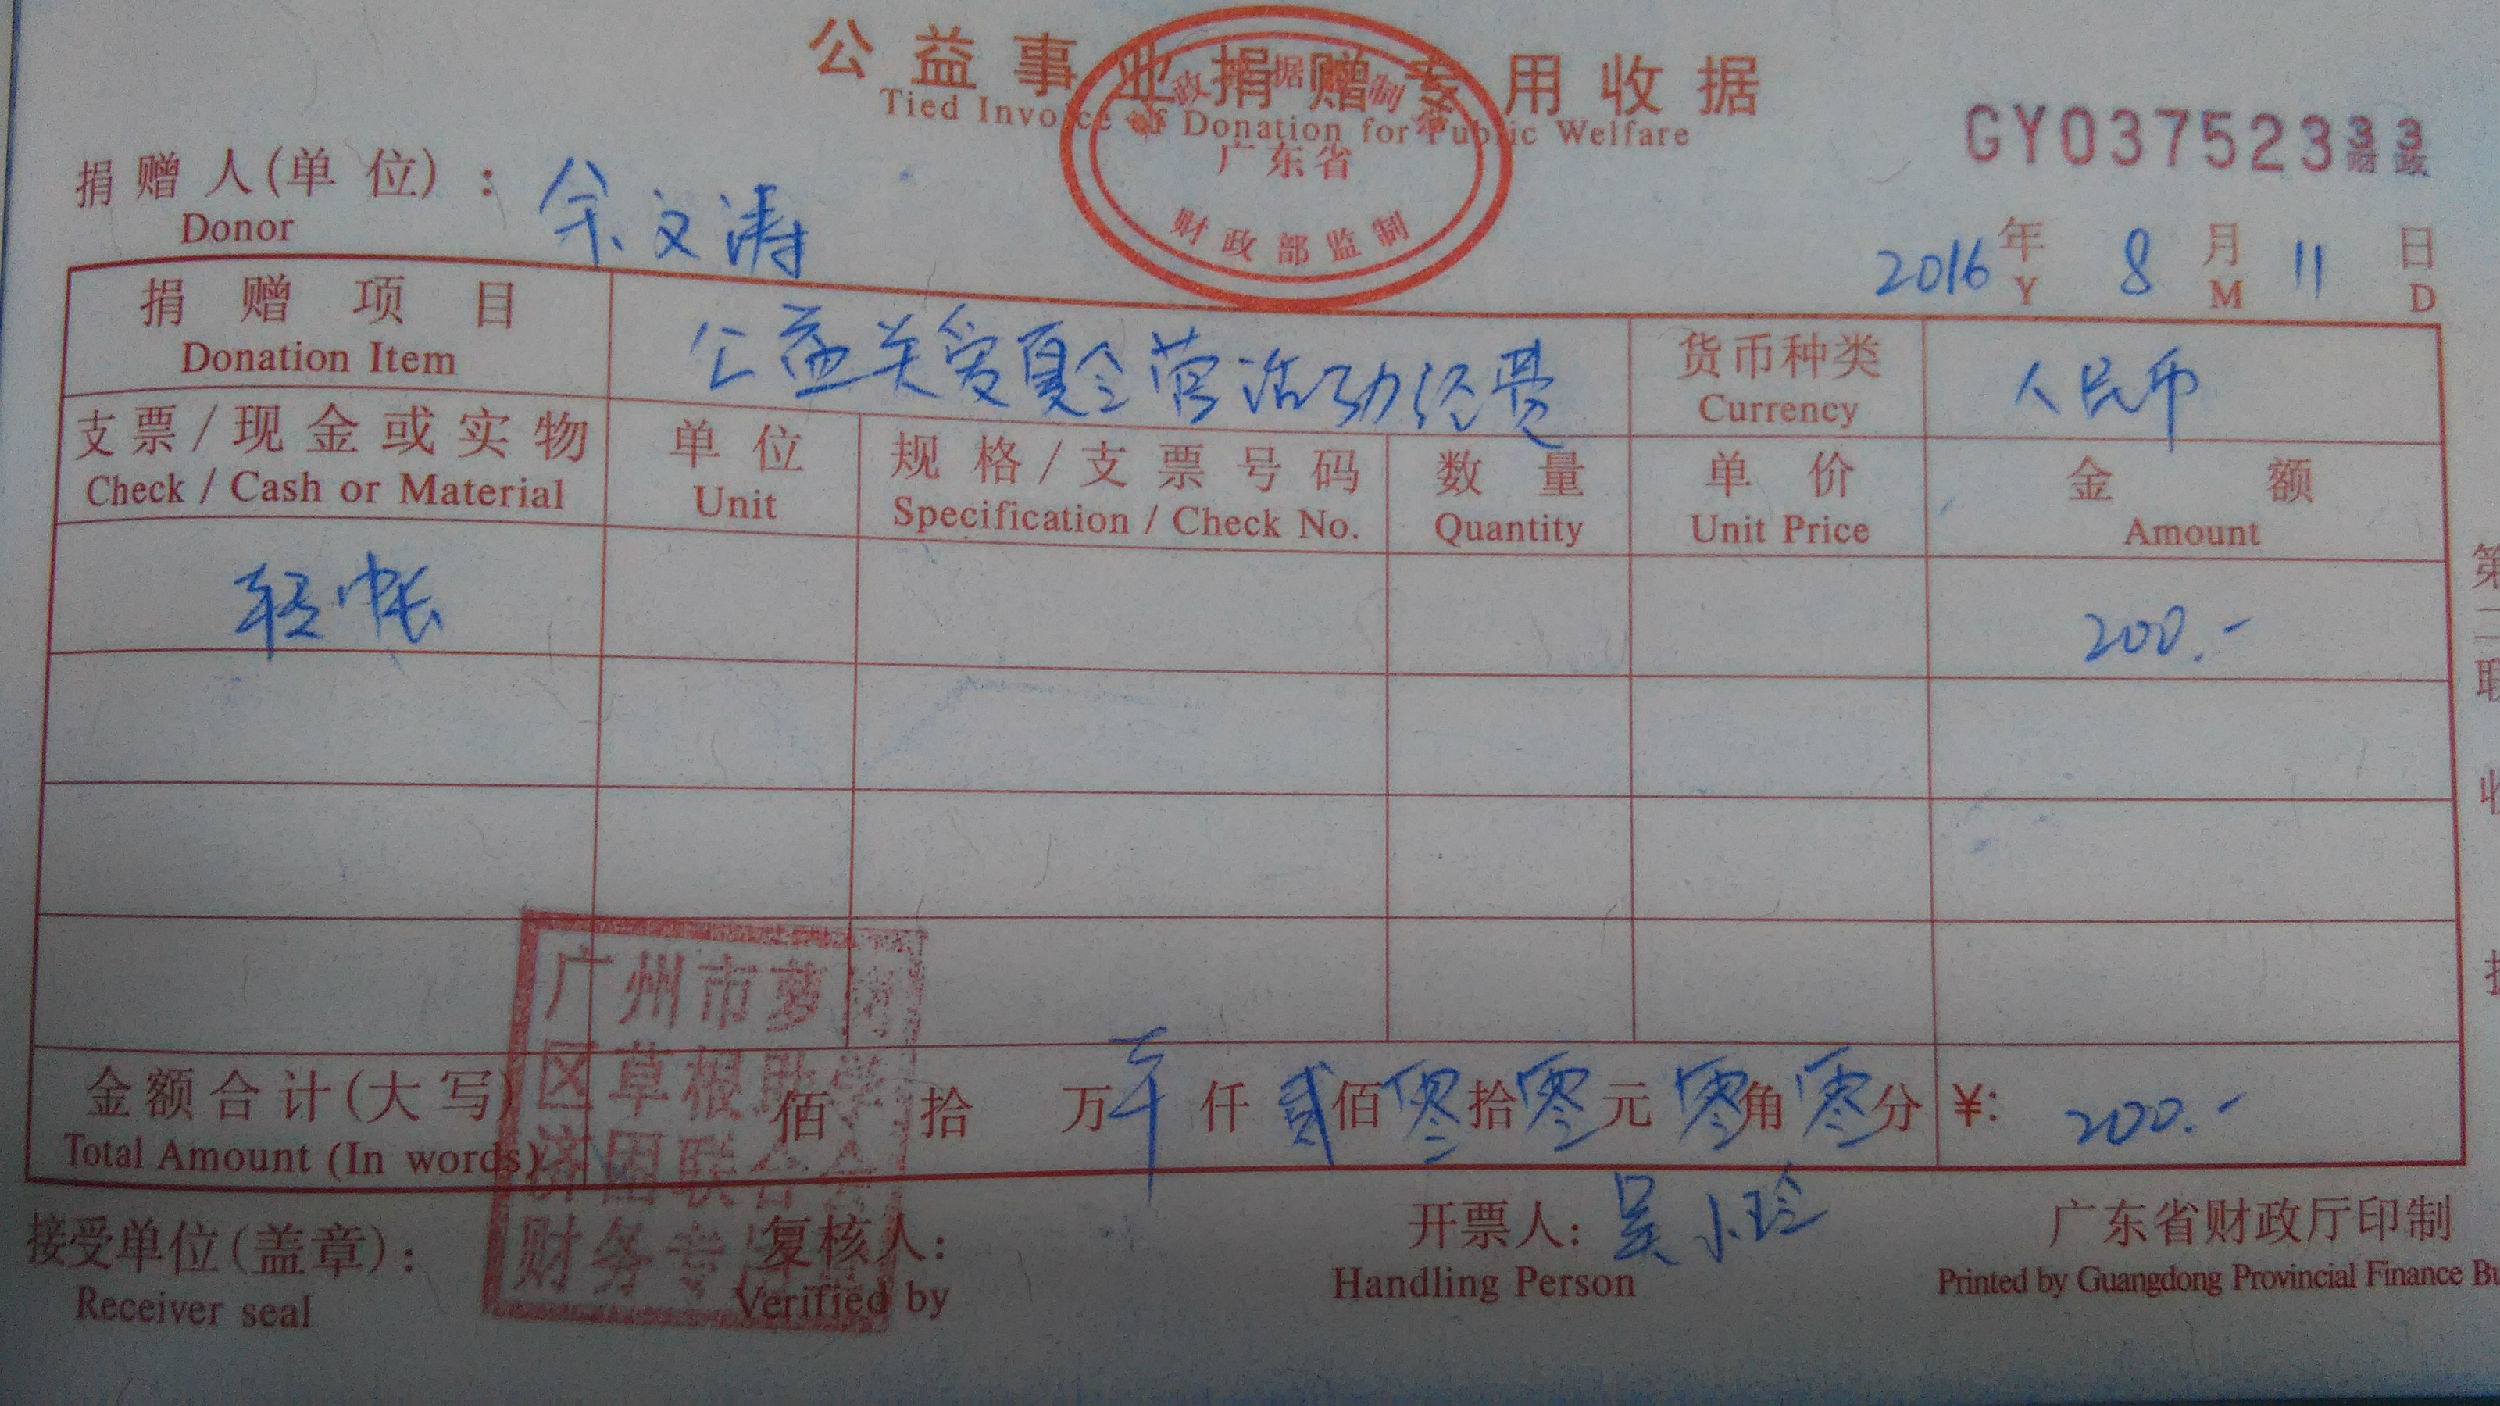 公益事业捐赠专用收据
Tied Invoice of Donation for Public Welfare
广东省
财政部监制
GY03752333
财政
捐赠人(单位)：余文涛
Donor
2016年8月11日
Y M D
捐赠项目 公益关爱夏令营活动经费 货币种类 人民币
Donation Item Currency
支票/现金或实物 单位 规格/支票号码 数量 单价 金额
Check / Cash or Material Unit Specification / Check No. Quantity Unit Price Amount
轻帐 200.-
金额合计(大写) 佰 拾 万 仟 贰佰零拾零元零角零分 ¥: 200.-
Total Amount (In words)
广州市萝岗
区草根助学
济困联合会
财务专
接受单位(盖章)： 复核人： 开票人：吴小玲 广东省财政厅印制
Receiver seal Verified by Handling Person Printed by Guangdong Provincial Finance Bu
第二联 收